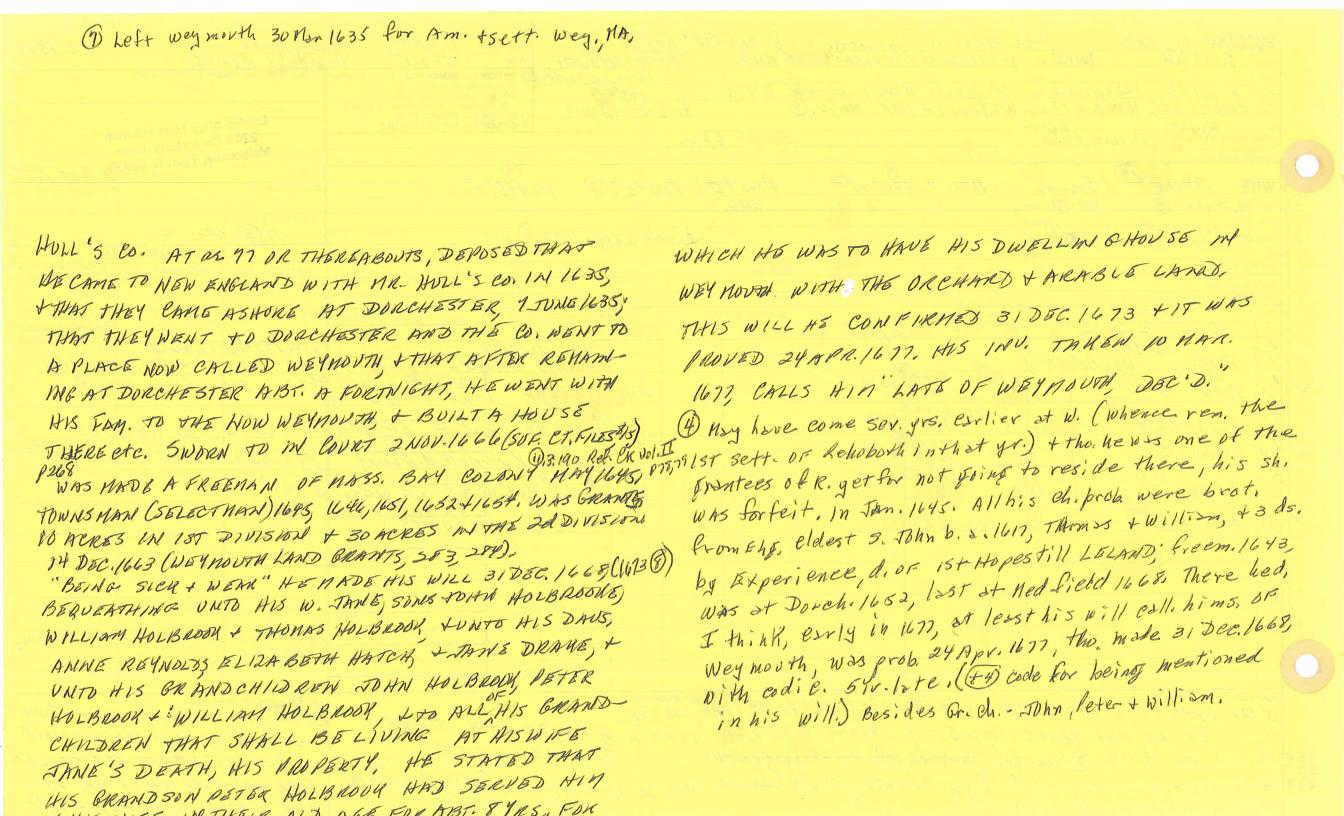 ⑦ Left Weymouth 30 Mar 1635 for Am. + sett. Wey., MA,
HULL'S CO. AT AE 77 OR THEREABOUTS, DEPOSED THAT
HE CAME TO NEW ENGLAND WITH MR. HULL'S CO. IN 1635,
+ THAT THEY CAME ASHORE AT DORCHESTER, 7 JUNE 1635;
THAT THEY WENT TO DORCHESTER AND THE CO. WENT TO
A PLACE NOW CALLED WEYMOUTH, + THAT AFTER REMAIN-
ING AT DORCHESTER ABT. A FORTNIGHT, HE WENT WITH
HIS FAM. TO THE NOW WEYMOUTH, + BUILT A HOUSE
THERE etc. SWORN TO IN COURT 2 NOV. 1666 (SUF. CT. FILES
P268 3:190 Ref. CR Vol. II P77,79
WAS MADE A FREEMAN OF MASS. BAY COLONY MAY 1645,
TOWNSMAN (SELECTMAN) 1645, 1646, 1651, 1652 + 1654. WAS GRANTED
10 ACRES IN 1ST DIVISION + 30 ACRES IN THE 2d DIVISION
14 DEC. 1663 (WEYMOUTH LAND GRANTS, 283, 284).
"BEING SICK + WEAK" HE MADE HIS WILL 31 DEC. 1668, (1673 ⑧)
BEQUEATHING UNTO HIS W. JANE, SONS JOHN HOLBROOKE,
WILLIAM HOLBROOK + THOMAS HOLBROOK, + UNTO HIS DAUS,
ANNE REYNOLDS, ELIZABETH HATCH, + JANE DRAKE, +
UNTO HIS GRANDCHILDREN JOHN HOLBROOK, PETER
HOLBROOK + WILLIAM HOLBROOK, + TO ALL OF HIS GRAND-
CHILDREN THAT SHALL BE LIVING AT HIS WIFE
JANE'S DEATH, HIS PROPERTY. HE STATED THAT
HIS GRANDSON PETER HOLBROOK HAD SERVED HIM
THEIR OLD AGE FOR ABT. 8 YRS., FOR
WHICH HE WAS TO HAVE HIS DWELLING HOUSE IN
WEYMOUTH WITH THE ORCHARD + ARABLE LAND.
THIS WILL HE CONFIRMED 31 DEC. 1673 + IT WAS
PROVED 24 APR. 1677. HIS INV. TAKEN 10 MAR.
1677, CALLS HIM "LATE OF WEYMOUTH, DEC'D."
④ May have come sev. yrs. earlier at W. (whence rem. the
1ST sett. of Rehoboth in that yr.) + tho. he was one of the
grantees of R. yet for not going to reside there, his sh.
was forfeit. in Jan. 1645. All his ch. prob. were brot.
from Eng. eldest s. John b. a. 1617, Thomas + William, + 3 ds.
by Experience, d. of 1st Hopestill LELAND; freem. 1643,
was at Dorch. 1652, last at Medfield 1668. There he d.
I think, early in 1677, at least his will call. hims. of
Weymouth, was prob. 24 Apr. 1677, tho. made 31 Dec. 1668,
with codic. 5 yr. late. (+4) code for being mentioned
in his will.) Besides Gr. ch. - John, Peter + William.